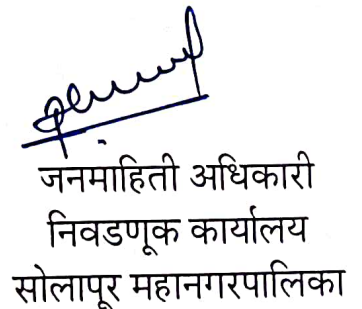 जनमाहिती अधिकारी
निवडणूक कार्यालय
सोलापूर महानगरपालिका